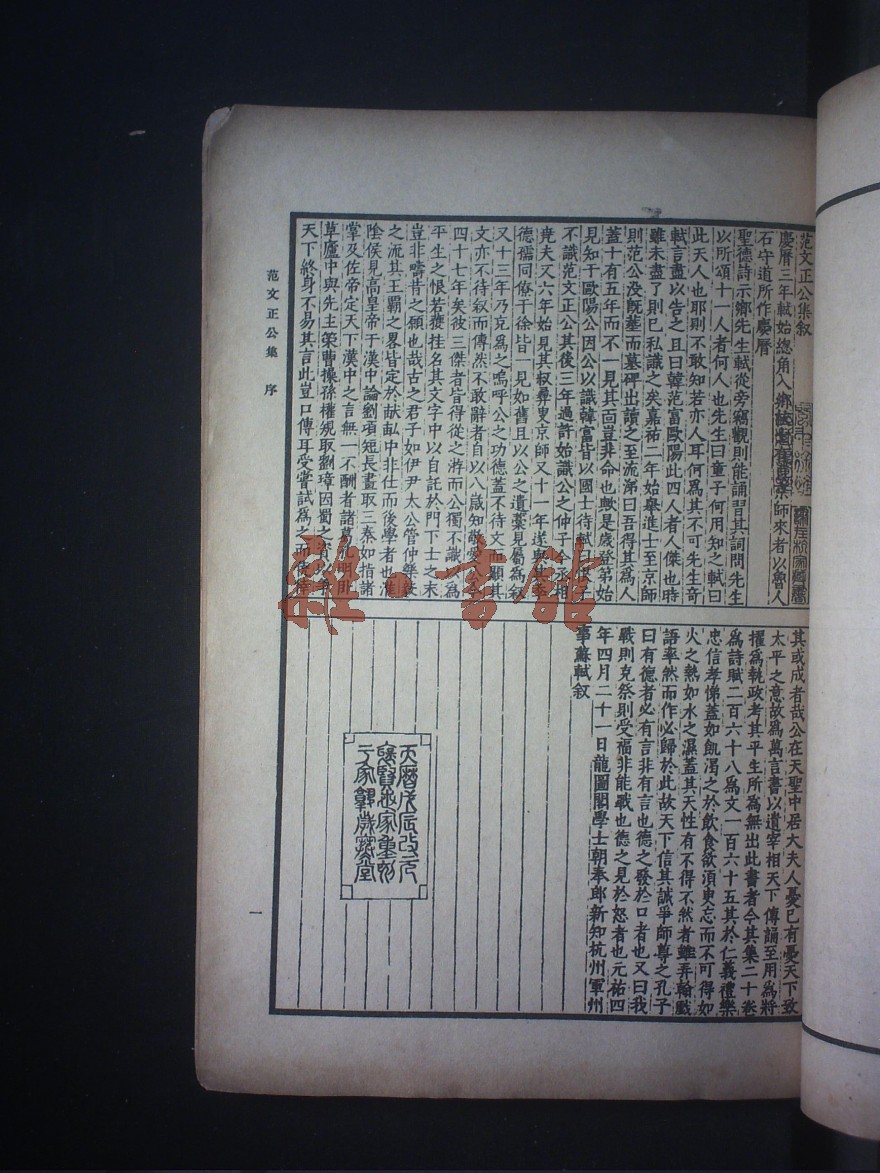 范文正公集叙
慶曆三年軾始總角入鄉校士有自京師來者以魯人
石守道所作慶曆
聖德詩示鄉先生軾從旁竊觀則能誦習其詞問先生
以所頌十一人者何人也先生曰童子何用知之軾曰
此天人也耶則不敢知若亦人耳何爲其不可先生奇
軾言盡以告之且曰韓范富歐陽此四人者人傑也時
雖未盡了則已私識之矣嘉祐二年始舉進士至京師
則范公没既葬而墓碑出讀之至流涕曰吾得其爲人
蓋十有五年而不一見其面豈非命也歟是歲登第始
見知于歐陽公因公以識韓富皆以國士待軾曰恨子
不識范文正公其後三年過許始識公之仲子今丞相
堯夫又六年始見其叔彝叟京師又十一年遂與其季
德孺同僚于徐皆一見如舊且以公之遺藁見屬爲叙
又十三年乃克爲之嗚呼公之功德蓋不待文而顯其
文亦不待叙而傳然不敢辭者自以八歲知敬愛公今
四十七年矣彼三傑者皆得從之游而公獨不識以爲
平生之恨若獲挂名其文字中以自託於門下士之末
豈非疇昔之願也哉古之君子如伊尹太公管仲樂毅
之流其王霸之畧皆定於畎畝中非仕而後學者也淮
陰侯見高皇帝于漢中論劉項短長畫取三秦如指諸
掌及佐帝定天下漢中之言無一不酬者諸葛孔明卧
草廬中與先主策曹操孫權規取劉璋因蜀之資以爭
天下終身不易其言此豈口傳耳受嘗試爲之而僥倖
其或成者哉公在天聖中居大夫人憂已有憂天下致
太平之意故爲萬言書以遺宰相天下傳誦至用爲將
擢爲執政考其平生所爲無出此書者今其集二十卷
爲詩賦二百六十八爲文一百六十五其於仁義禮樂
忠信孝悌蓋如飢渴之於飲食欲須臾忘而不可得如
火之熱如水之濕蓋其天性有不得不然者雖弄翰戲
語率然而作必歸於此故天下信其誠爭師尊之孔子
曰有德者必有言非有言也德之發於口者也又曰我
戰則克祭則受福非能戰也德之見於怒者也元祐四
年四月二十一日龍圖閣學士朝奉郎新知杭州軍州
事蘇軾叙
天曆戊辰改元
褒賢世家重刻
于家塾歲寒堂
范文正公集 序
一
雜书館